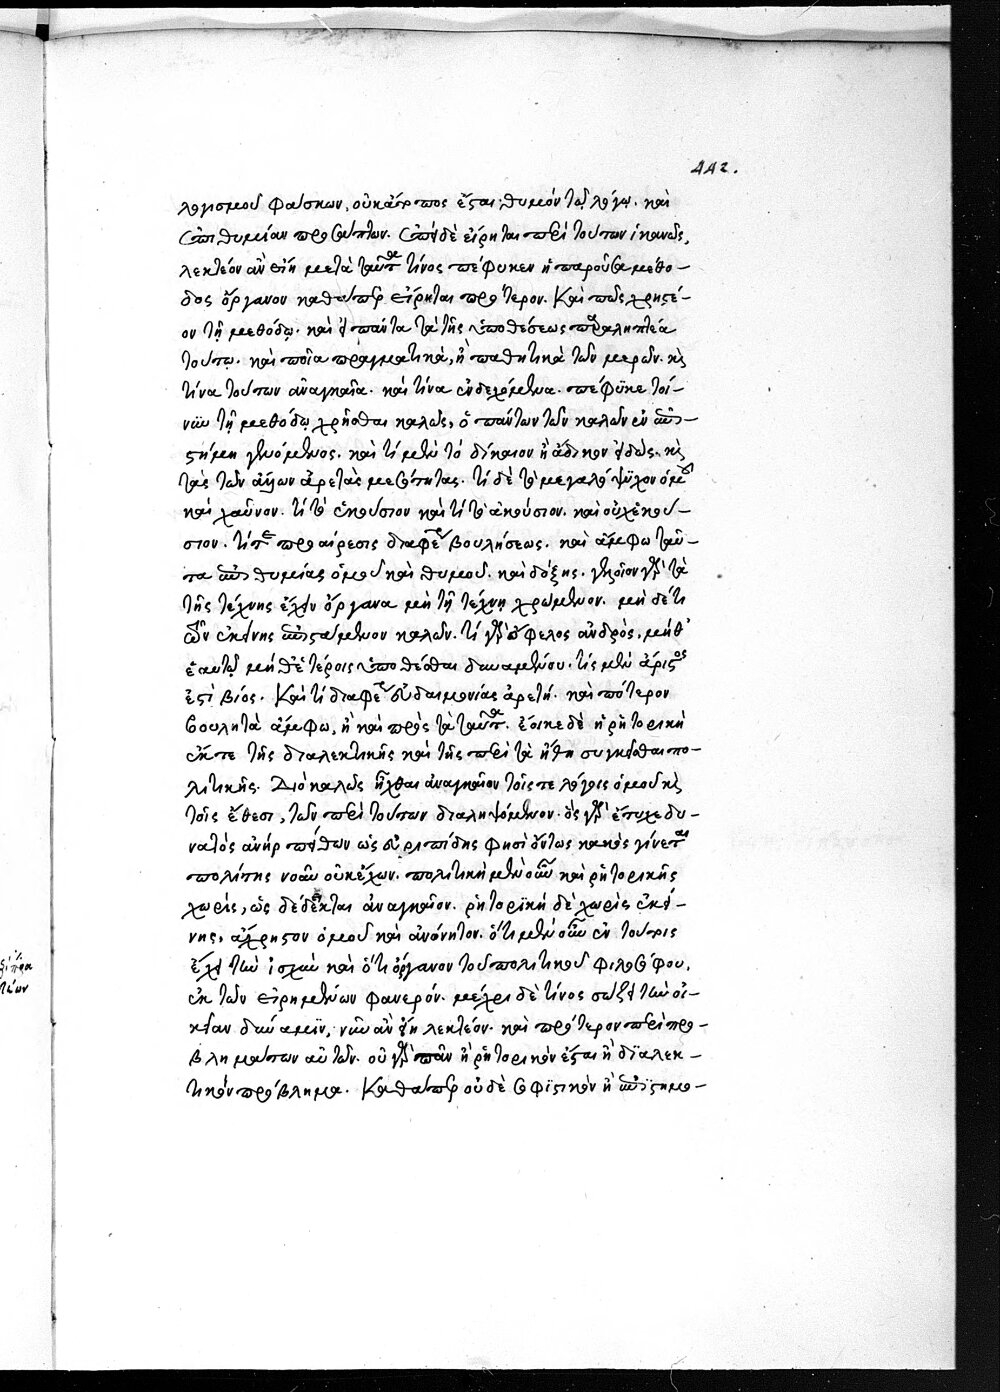 442.
λογισμοῦ φάσκων, οὐκ ἄτοπος ἔσται θυμόν τῷ λόγῳ. καὶ
ἐπιθυμίαν προσάπτων. ἐπεὶ δὲ εἴρηται περὶ τούτων ἱκανῶς,
λεκτέον ἂν εἴη μετὰ ταῦτα τίνος πέφυκεν ἡ παροῦσα μέθο-
δος ὄργανον καθάπερ εἴρηται πρότερον. Καὶ πῶς χρηστέ-
ον τῇ μεθόδῳ. καὶ εἰ πάντα τὰ τῆς ὑποθέσεως παραληπτέα
τούτῳ. καὶ ποῖα πραγματικὰ, ἢ παθητικὰ τῶν μερῶν. κỳ
τίνα τούτων ἀναγκαῖα. καὶ τίνα ἐνδεχόμενα. πέφυκε τοί-
νυν τῇ μεθόδῳ χρῆσθαι καλῶς, ὁ πάντων τῶν καλῶν ἐν ἐπι-
στήμῃ γενόμενος. καὶ τί μὲν τὸ δίκαιον ἢ ἄδικον εἰδώς. κỳ
τὰς τῶν ἄκρων ἀρετὰς μεσότητας. τί δὲ τὸ μεγαλόψυχον ὁμοῦ
καὶ χαῦνον. τί τὸ ἑκούσιον καὶ τί τὸ ἀκούσιον. καὶ οὐχ ἑκού-
σιον. τί τε προαίρεσις διαφέρει βουλήσεως. καὶ ἄμφω ταῦ-
τα ἐπιθυμίας ὁμοῦ καὶ θυμοῦ. καὶ δόξης. γελοῖον γὰρ τὰ
τῆς τέχνης ἔχειν ὄργανα μὴ τῇ τέχνῃ χρώμενον. μηδέ τι
τῶν ἐκείνης ἐπιστάμενον καλῶν. τί γὰρ ὄφελος ἀνδρὸς, μήθ'
ἑαυτῷ μήθ' ἑτέροις ὑποθέσθαι δυναμένου. τίς μὲν ἄριστος
ἐστὶ βίος. Καὶ τί διαφέρει εὐδαιμονίας ἀρετή. καὶ πότερον
βουλητὰ ἄμφω, ἢ καὶ πρὸς τὰ ταῦτα. ἔοικε δὲ ἡ ῥητορικὴ
ἔκ τε τῆς διαλεκτικῆς καὶ τῆς περὶ τὰ ἤθη συγκεῖσθαι πο-
λιτικῆς. Διὸ καλῶς ἦχθαι ἀναγκαῖον τοῖς τε λόγοις ὁμοῦ κỳ
τοῖς ἔθεσι, τῶν περὶ τούτων διαληψόμενον. ὃς γὰρ ἔτυχε δυ-
νατὸς ἀνὴρ πείθων ὡς εὐριπίδης φησὶ οὕτως κακὸς γίνεται
πολίτης νοῦν οὐκ ἔχων. πολιτικὴ μὲν οὖν καὶ ῥητορικῆς
χωρὶς, ὡς δέδεικται ἀναγκαῖον. ῥητορικὴ δὲ χωρὶς ἐκεί-
νης, ἄχρηστον ὁμοῦ καὶ ἀνόνητον. ὅτι μὲν οὖν ἐν τούτοις
ἔχει τὴν ἰσχὺν καὶ ὅτι ὄργανον τοῦ πολιτικοῦ φιλοσόφου,
ἐκ τῶν εἰρημένων φανερόν. μέχρι δὲ τίνος σώζει τὴν οἰ-
κείαν δύναμιν, νῦν ἂν εἴη λεκτέον. καὶ πρότερον περὶ προ-
βλημάτων αὐτῶν. οὐ γὰρ πᾶν ἢ ῥητορικὸν ἔσται ἢ διαλεκ-
τικὸν πρόβλημα. Καθάπερ οὐδὲ σοφιστικὸν ἢ ἐπιστημο-